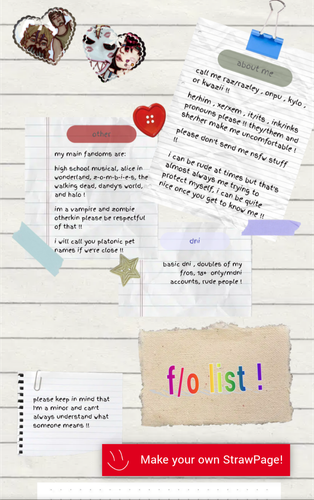 about me
call me raz/razley , onpu , kylo ,
or kwazii !!
he/him , xe/xem , it/its , ink/inks
pronouns please !! they/them and
she/her make me uncomfortable !
please don't send me nsfw stuff
!!
i can be rude at times but that's
almost always me trying to
protect myself, i can be quite
nice once you get to know me !!
other
my main fandoms are:
high school musical, alice in
wonderland, z-o-m-b-i-e-s, the
walking dead, dandy's world,
and halo !
im a vampire and zombie
otherkin please be respectful
of that !!
i will call you platonic pet
names if we're close !!
dni
basic dni , doubles of my
f/os, 18+ only/mdni
accounts, rude people !
f/o list !
please keep in mind that
i'm a minor and can't
always understand what
someone means !!
Make your own StrawPage!